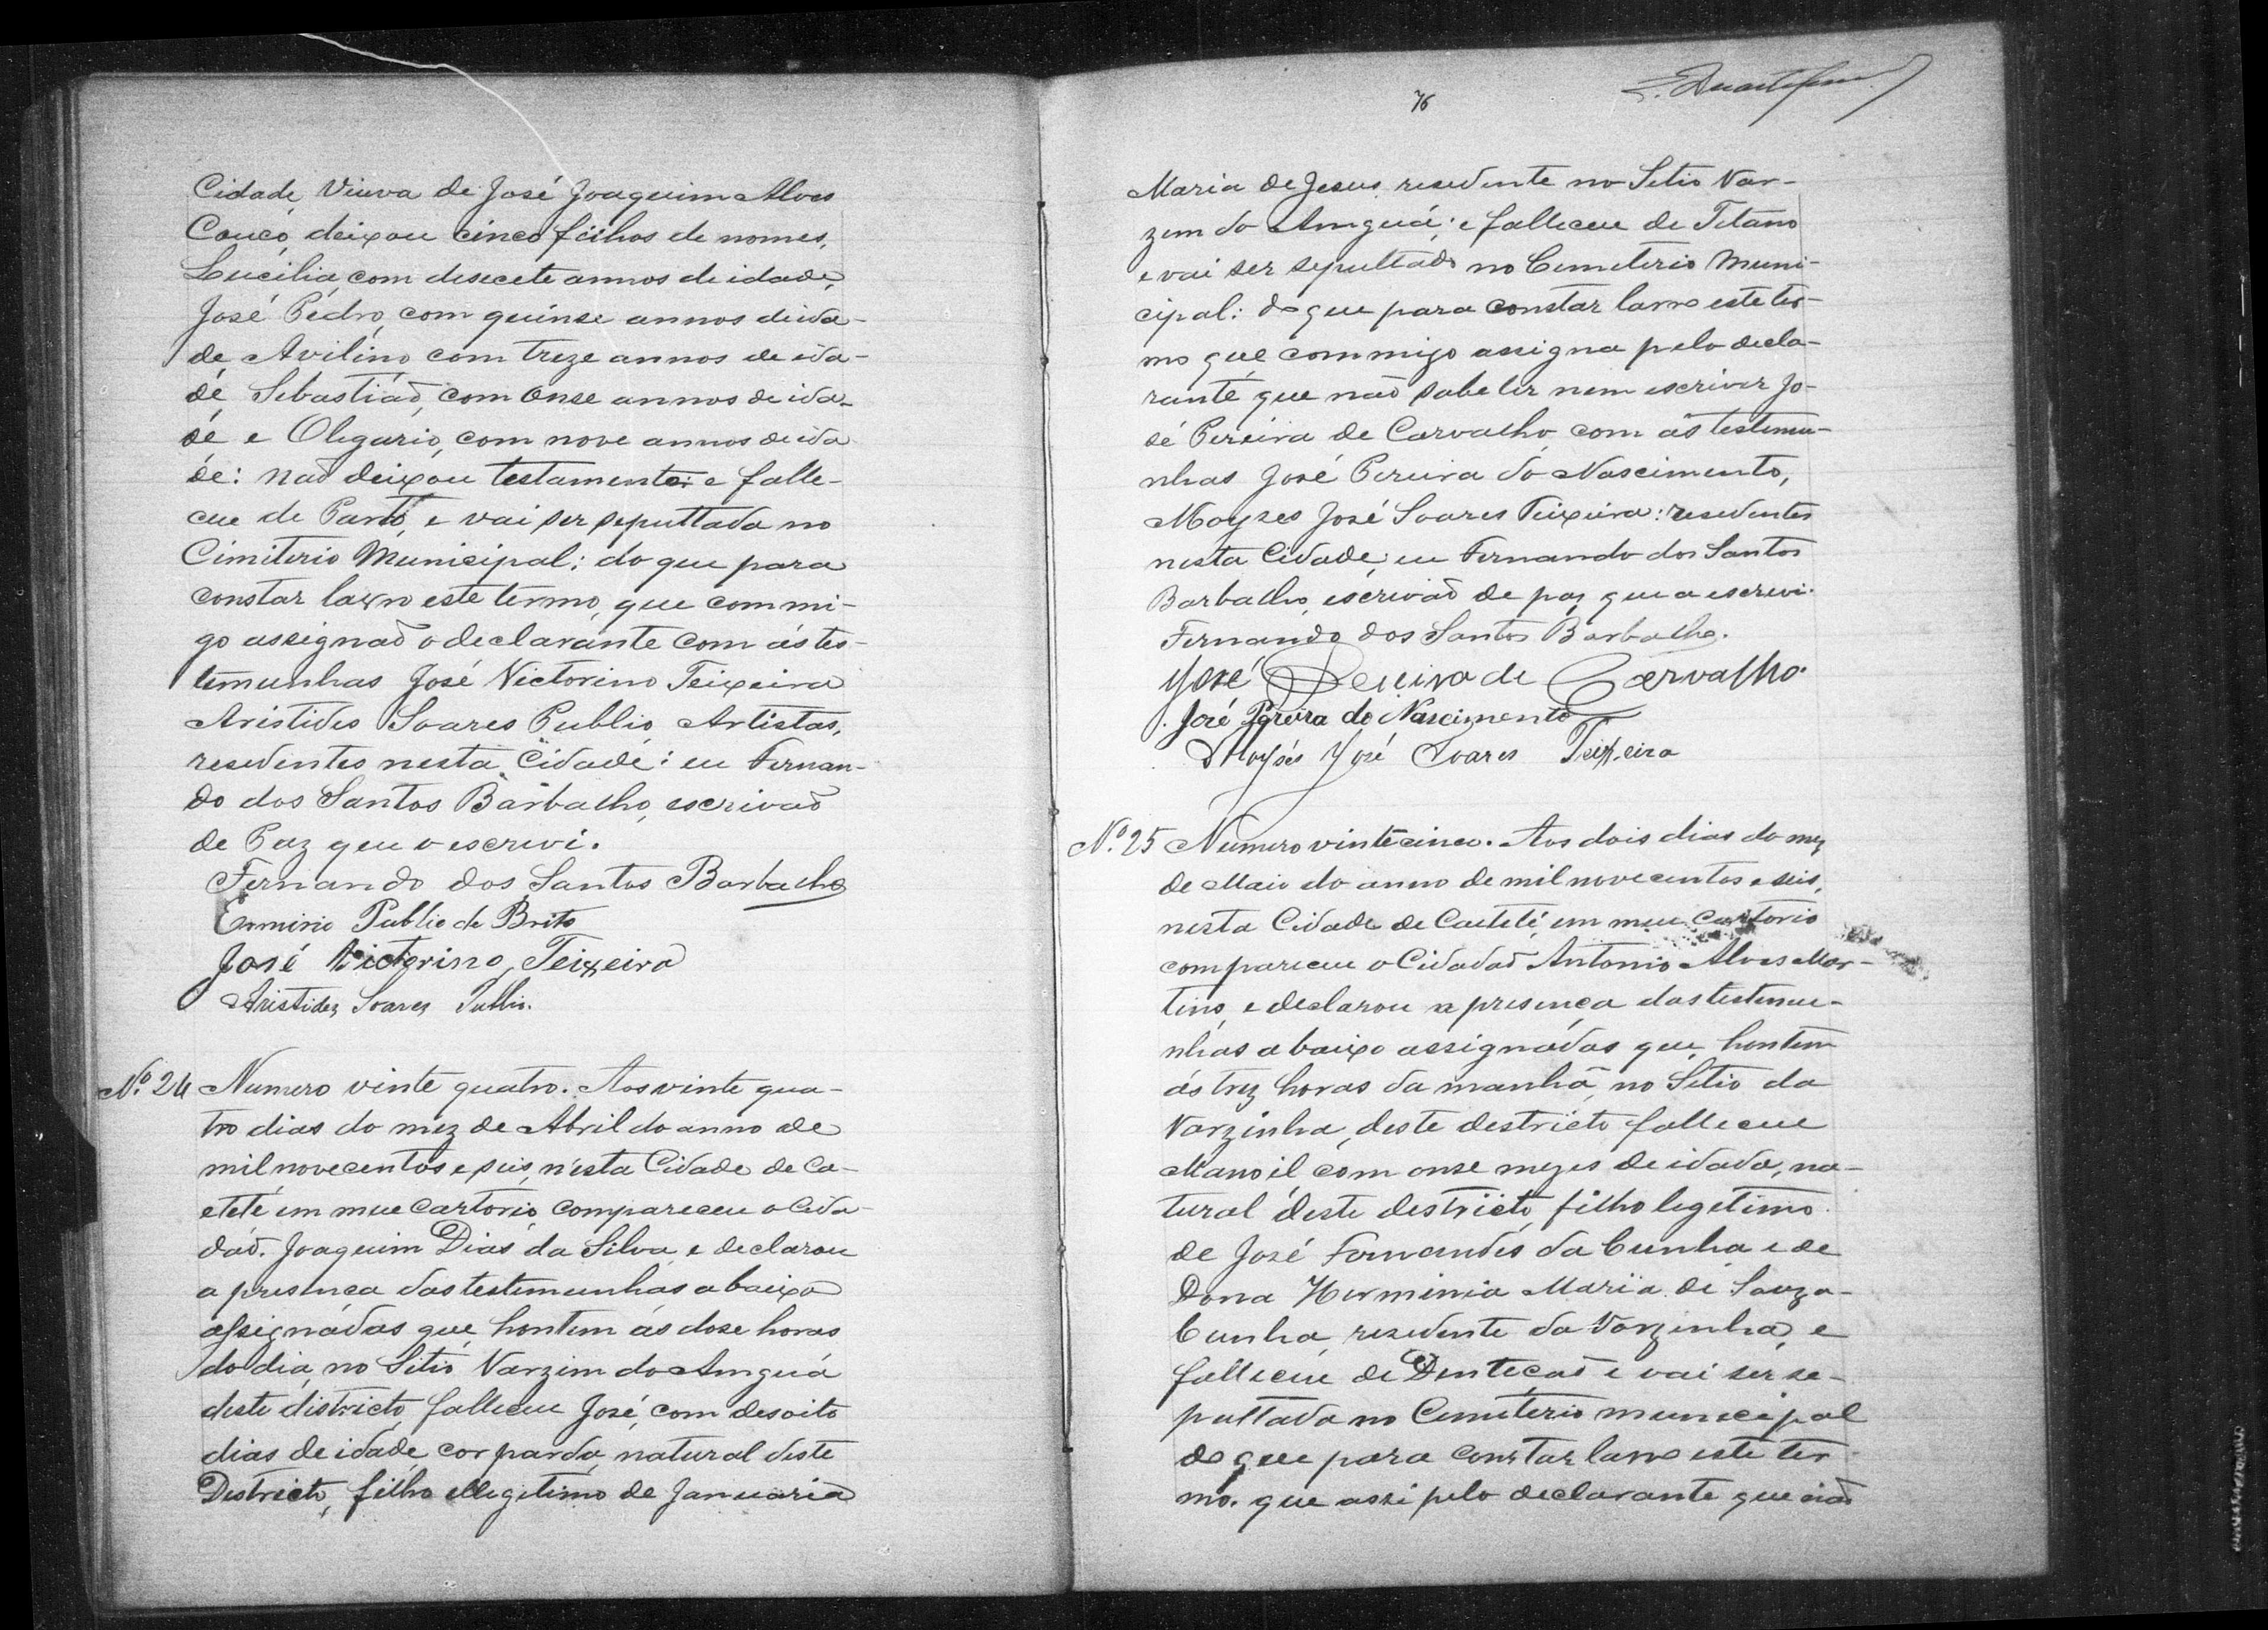 Cidade, Viuva de José Joaquim Alves
Couco, deixou cinco filhos de nomes,
Lucilia, com desecete annos de idade,
José Pedro, com quinse annos de ida-
de, Avilino com treze annos de ida-
de, Sebastiaõ, com onse annos de ida-
de e Olegario, com nove annos de ida
de: naõ deixou testamento: e falle-
ceu de Parto, e vai ser sepultada no
Cimiterio Municipal: do que para
constar lavro este termo, que commi-
go assignaõ o declarante com ás tes-
temunhas José Victorino Teixeira
Aristides Soares Publio, Artistas,
resedentes nesta Cidade: eu Fernan-
do dos Santos Barbalho, escrivaõ
de Paz que o escrevi.
Fernando dos Santos Barbalho
Erminio Publio de Brito
José Victorino Teixeira
Aristides Soares Publio.
Nº. 24 Numero vinte quatro. Aos vinte qua-
tro dias do mez de Abril do anno de
mil novecentos e seis, n'esta Cidade de Ca-
eteté em meu cartorio compareceu o Cida-
daõ. Joaquim Dias da Silva, e declarou
a presença das testemunhas abaixo
assignadas que hontem ás dose horas
do dia, no Sitio Varzim do Anguá
deste districto, falleceu José, com desoito
dias de idade, cor parda, natural deste
Destricto, filho illegetimo de Januaria
76
Maria de Jesus, resedente no Setio Var-
zem do Anguá; e falleceu de Tetano
e vai ser sepultado no Cemeterio Muni-
cipal: do que para constar lavro este ter-
mo que commigo assigna pelo decla-
rante que naõ sabe ler nem escrever Jo-
sé Pereira de Carvalho, com ás testemu-
nhas José Pereira do Nascimento,
Moyses José Soares Teixeira: resedentes
nesta Cidade, eu Fernando dos Santos
Barbalho, escrivaõ de paz que a escrevi.
Fernando dos Santos Barbalho.
José Pereira de Carvalho.
José Pereira do Nascimento
Moysés José Soares Teixeira
Nº. 25 Numero vinte cinco. Aos dois dias do mez
de Maio do anno de mil novecentos e seis,
nesta Cidade de Caeteté, em meu Cartorio
compareceu o Cidadaõ Antonio Alves Mar-
tins, e declarou a presença das testemu-
nhas abaixo assignadas que, hontem
ás trez horas da manhã, no Sitio da
Varzinha, deste destricto falleceu
Manoil, com onse mezes de idade, na-
tural deste destricto, filho legetimo
de José Fernandes da Cunha e de
Dona Herminia Maria de Souza
Cunha, resedente da Varzenha, e
falleceu de Denteçaõ e vai ser se-
pultada no Cemeterio municipal
do que para constar lavro este ter
mo. que assi pelo declarante que naõ